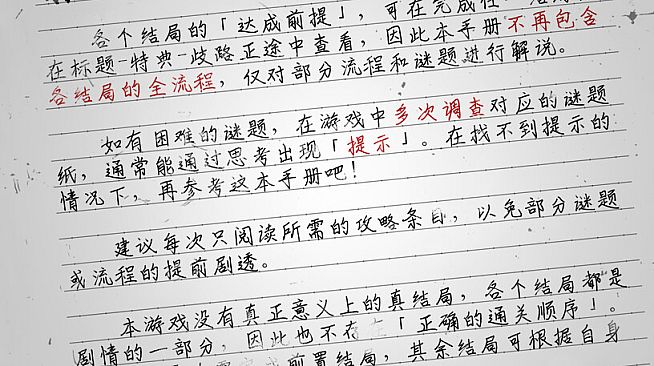 各个结局的「达成前提」,可在完成任
在标题-特典-歧路正途中查看,因此本手册不再包含
各结局的全流程,仅对部分流程和谜题进行解说。
如有困难的谜题,在游戏中多次调查对应的谜题
纸,通常能通过思考出现「提示」。在找不到提示的
情况下,再参考这本手册吧!
建议每次只阅读所需的攻略条目,以免部分谜题
或流程的提前剧透。
本游戏没有真正意义上的真结局,各个结局都是
剧情的一部分,因此也不存在「正确的通关顺序」。
前置结局,其余结局可根据自身